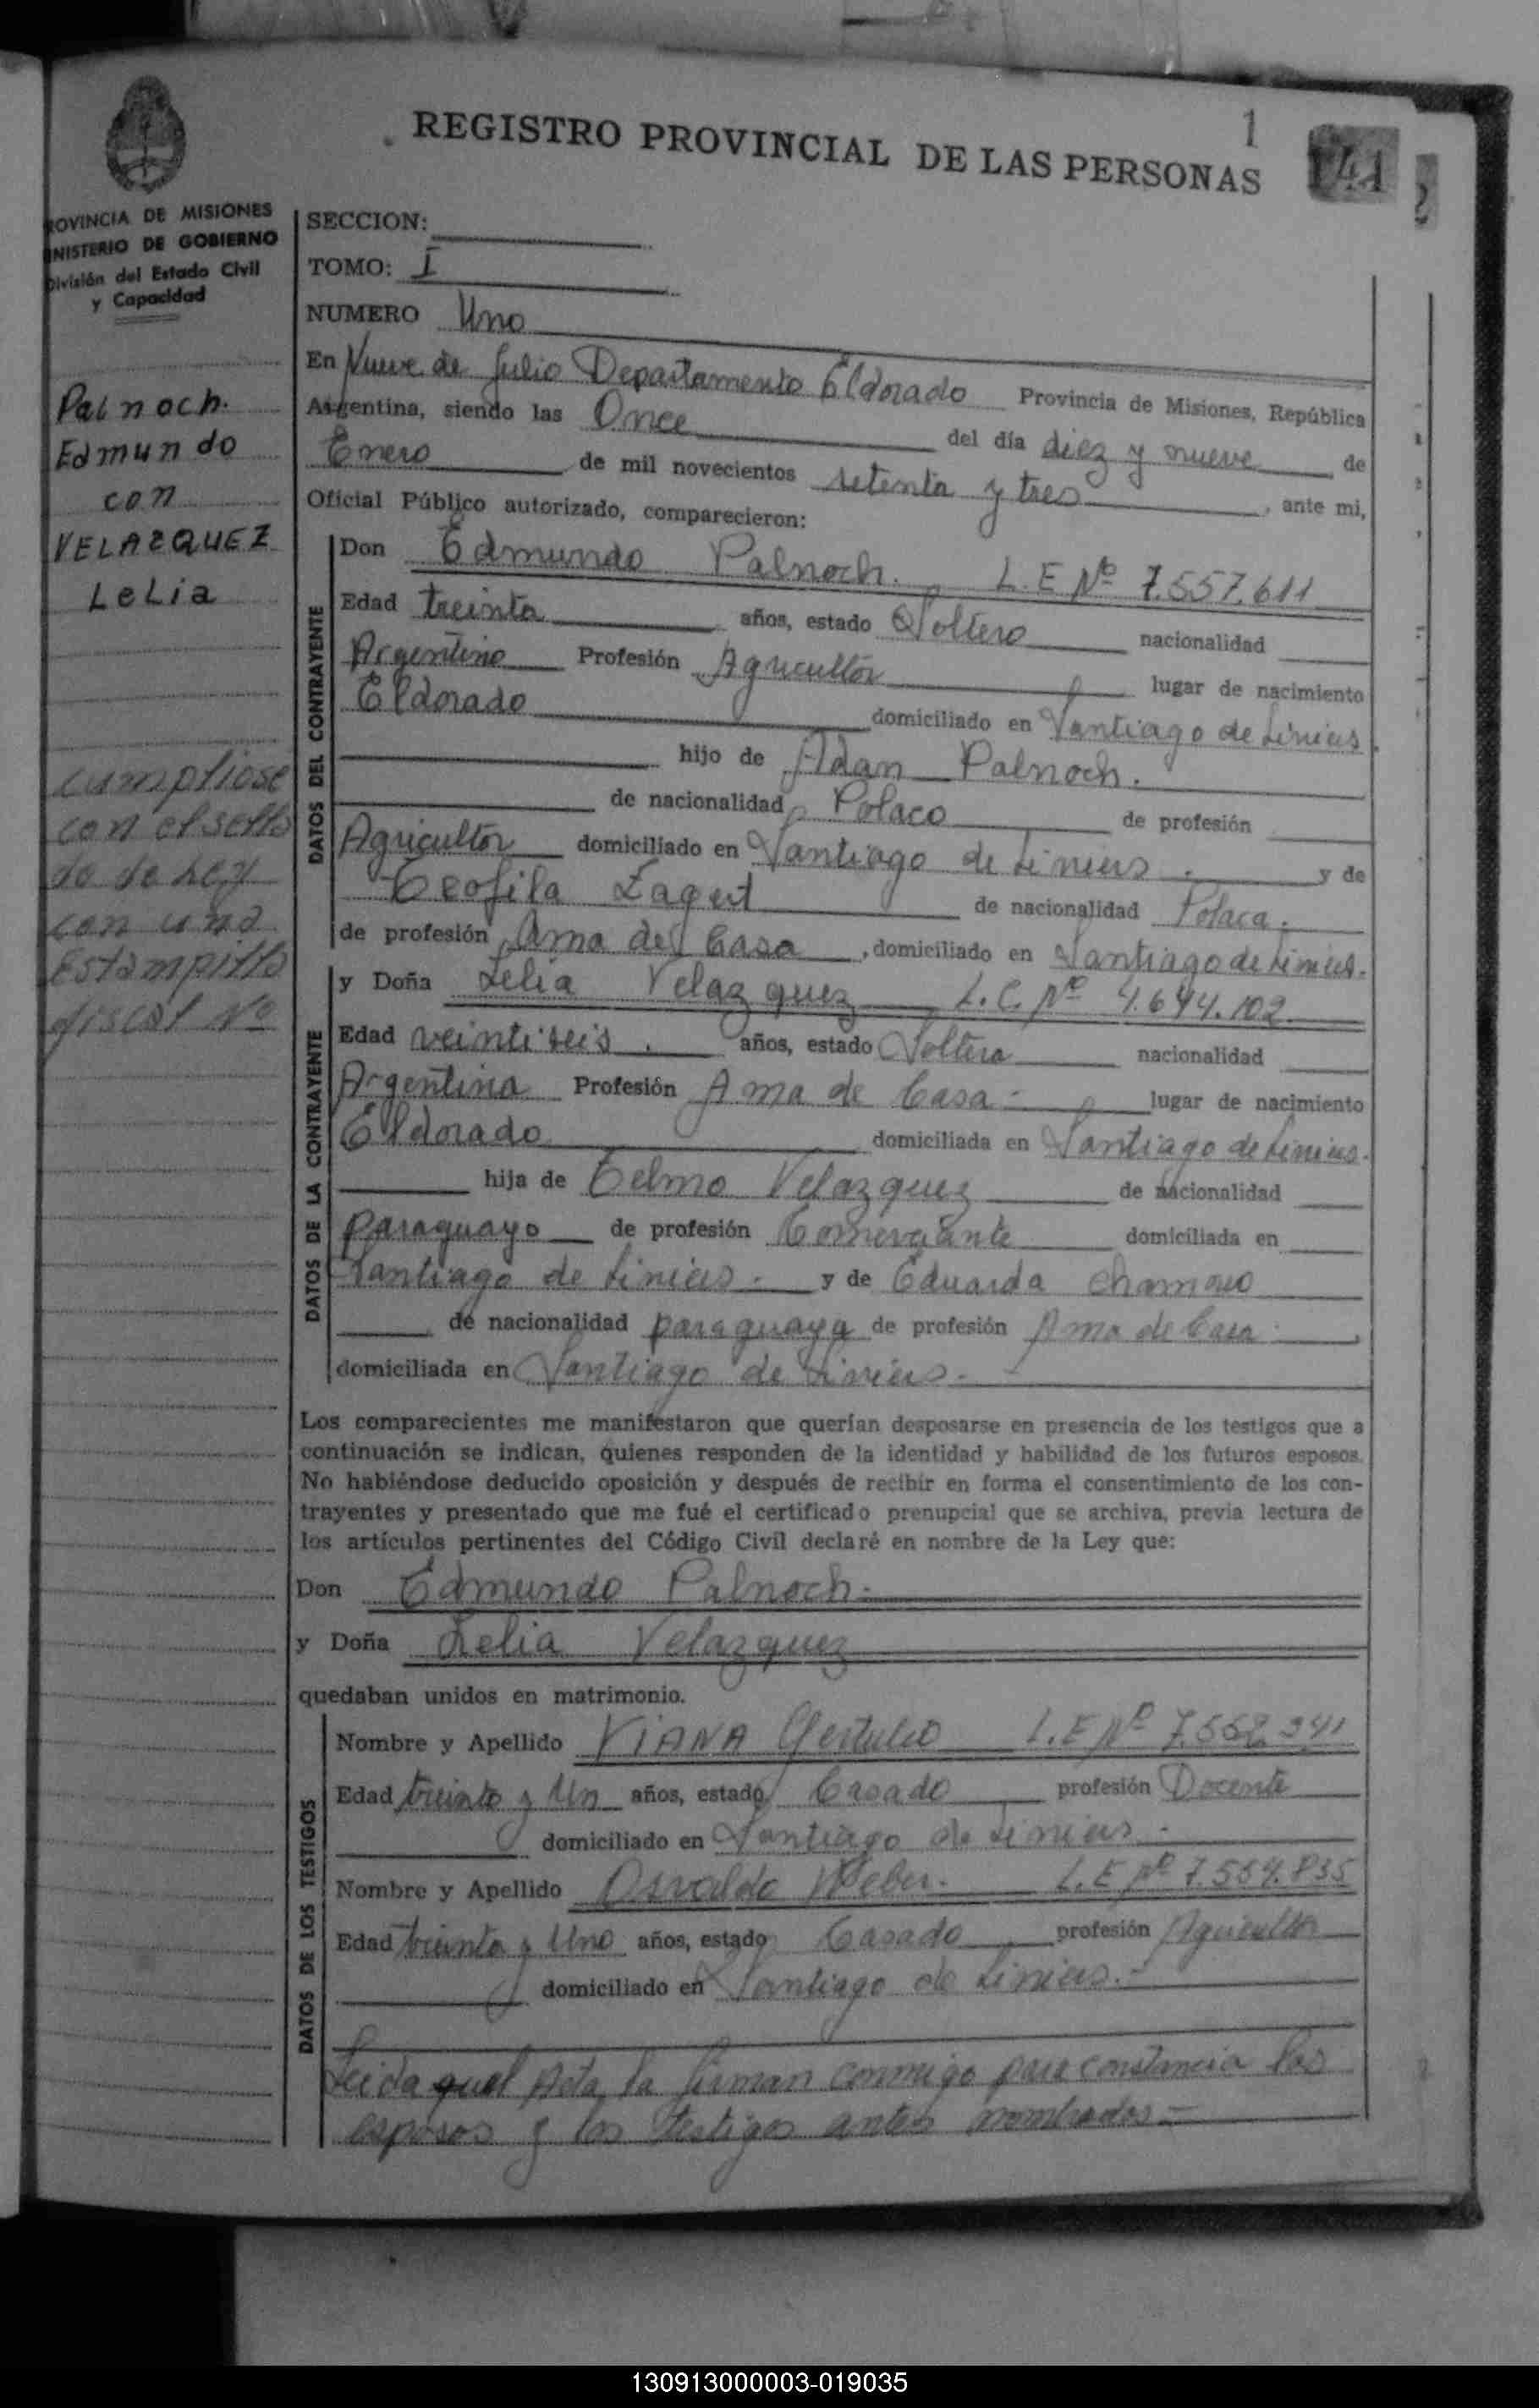 REGISTRO PROVINCIAL DE LAS PERSONAS
1
141
PROVINCIA DE MISIONES
MINISTERIO DE GOBIERNO
División del Estado Civil
y Capacidad
Palnoch.
Edmundo
con
VELAZQUEZ
Lelia
cumpliose
con el sella
do de Ley
con una
Estampilla
fiscal Nº
SECCION:
TOMO: I
NUMERO Uno
En Nueve de Julio Departamento Eldorado Provincia de Misiones, República
Argentina, siendo las Once del día diez y nueve de
Enero de mil novecientos setenta y tres, ante mi,
Oficial Público autorizado, comparecieron:
DATOS DEL CONTRAYENTE
Don Edmundo Palnoch. L.E Nº 7.557.611
Edad treinta años, estado Soltero nacionalidad
Argentino Profesión Agricultor lugar de nacimiento
Eldorado domiciliado en Santiago de Liniers
hijo de Adan Palnoch.
de nacionalidad Polaco de profesión
Agricultor domiciliado en Santiago de Liniers. y de
Teofila Zagert de nacionalidad Polaca.
de profesión Ama de Casa, domiciliado en Santiago de Liniers.
DATOS DE LA CONTRAYENTE
y Doña Lelia Velazquez L.C. Nº 4.644.102
Edad veintiseis. años, estado Soltera nacionalidad
Argentina Profesión Ama de Casa. lugar de nacimiento
Eldorado domiciliada en Santiago de Liniers.
hija de Telmo Velazquez de nacionalidad
paraguayo de profesión Comerciante domiciliada en
Santiago de Liniers. y de Eduarda Chamorro
de nacionalidad paraguaya de profesión Ama de Casa
domiciliada en Santiago de Liniers.
Los comparecientes me manifestaron que querían desposarse en presencia de los testigos que a
continuación se indican, quienes responden de la identidad y habilidad de los futuros esposos.
No habiéndose deducido oposición y después de recibir en forma el consentimiento de los con-
trayentes y presentado que me fué el certificado prenupcial que se archiva, previa lectura de
los artículos pertinentes del Código Civil declaré en nombre de la Ley que:
Don Edmundo Palnoch.
y Doña Lelia Velazquez
quedaban unidos en matrimonio.
DATOS DE LOS TESTIGOS
Nombre y Apellido VIANA Gertulio L.E Nº 7.562.341
Edad treinta y Un años, estado Casado profesión Docente
domiciliado en Santiago de Liniers.
Nombre y Apellido Osvaldo Weber. L.E Nº 7.564.835
Edad treinta y Uno años, estado Casado profesión Agricultor
domiciliado en Santiago de Liniers.
Leida que el Acta, la firman conmigo para constancia los
esposos y los testigos antes nombrados
130913000003-019035